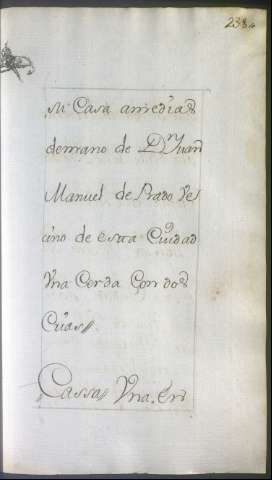 238
Mi Casa arrediad
demano de Dn Juan
Manuel de Prado Ve
cino de esta Ciudad
Vna Cerda Con dos
Crias
Cassa Vna. En